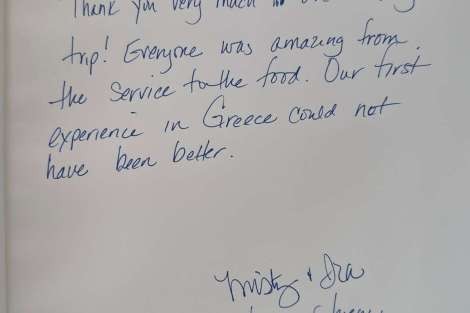 Thank you very much
trip! Everyone was amazing from
the service to the food. Our first
experience in Greece could not
have been better.
Misty + Ira